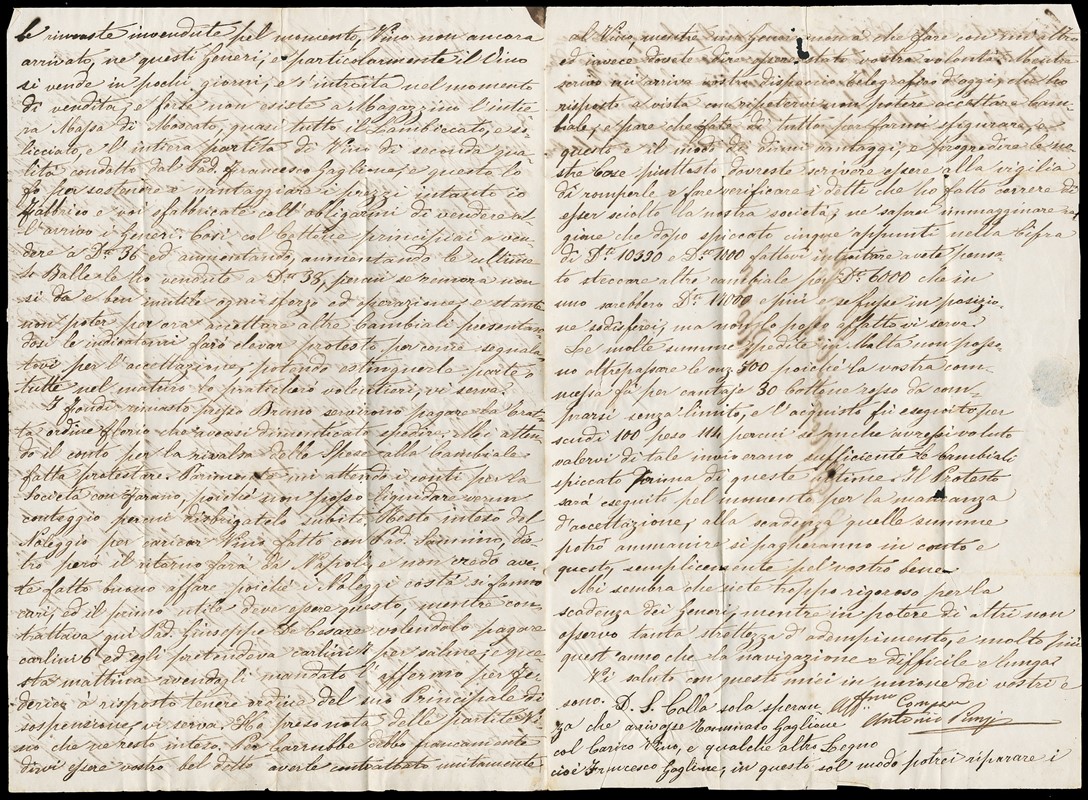 le rimaste invendute pel momento, Vino non ancora
arrivato, ne questi Generi, e particolarmente il Vino
si vende in pochi giorni, e s'introita nel momento
di vendita, e forse non esiste a Magazzino l'intie-
ra Massa di Moscato, quasi tutto il Lambiccato, e so-
licciato, e l'intiera partita di Vino di seconda qua-
lità condotto dal Pad. Francesco Gaglione, e questo lo
fo per sostenere e vantaggiare i prezzi intanto io
Fabbrico e voi sfabbricate coll'obligarmi di vendere al-
l'arrivo i Generi. Così col Cottone principiai a ven-
dere a Dti 36 ed aumentando, aumentando le ultime
Balle le ho vendute a Dti 38, perciò se remora non
si dà è ben inutile ogni sforzo ed operazione, e stante
non poter per ora accettare altre Cambiali presentan-
dosi le indicatemi farò elevar protesto per come segnala-
tovi per l'accettazione, potendo estinguerle parte o
tutte nel maturo lo praticherò volentieri, vi serva.
I fondi rimasto presso Bruno servirono pagare la trat-
ta ordine Florio che avevasi dimenticato spedire. Sto atten-
do il conto per la rivalsa delle Spese alla Cambiale
fatta protestare. Parimente mi attendo i conti per la
Società con Farano, poichè non posso liquidare verun
conteggio perciò disbrigatelo subito. Resto inteso del
Noleggio per caricar Vino fatto con Pad. Iammino, die-
tro però il ritorno farà da Napoli, e non credo ave-
te fatto buono affare poichè i Noleggi costà si fanno
cari, ed il primo utile deve essere questo, mentre con-
trattava qui Pad. Giuseppe De Cesare volendolo pagare
carlini 6 ed egli pretendeva carlini per salme, que-
sta mattina avendogli mandato l'affermo per Fe-
derico à risposto tenere ordine del suo Principale di
sospensione, vi serva. Ho preso nota delle partite Vi-
no che ne resto inteso. Per Carrubbe debbo francamente
dirvi essere vostro bel detto averle contrattate unitamente
al Vino, mentre una Genere non à che fare con un'altro
ed invece dovete dire essere stata vostra volontà. Mentre
scrivo mi arriva vostra disposizione telegrafica d'oggi, che ho
risposto a vista con ripetervi non potere accettare Cam-
biale, e pare che fate di tutto per farmi sfigurare, e
questo è il modo di darmi vantaggi, e progredire le no-
stre Case piuttosto dovreste scrivere essere alla vigilia
di romperle, o fare verificare i detti che ho fatto correre di
esser sciolta la nostra società, ne saprei immagginare ra-
gione che dopo spiccato cinque appunti nella Cifra
di Dti 10390 e Dti 1100 fattovi intuitare avete pensa-
to staccare altre cambiale per Dti 6000 che in
uno sarebbero Dti 17000 e più e se fusse in posizio-
ne sodisferei, ma non lo posso affatto vi serva.
Le molte summe spedite in Malta non posso-
no oltrepassare le onze 300 poichè la vostra com-
messa fù per cantaja 30 Cottone rosso da com-
prarsi senza limito, e l'acquisto fù eseguito per
scudi 100 peso perciò se anche avressi voluto
valervi di tale invio erano sufficiente le cambiali
spiccato Prima di queste ultime. Il Protesto
sarà eseguito pel momento per la mancanza
d'accettazione, alla scadenza quelle summe
potrò ammanire si pagheranno in conto e
questo, semplicemente pel vostro bene.
Mi sembra che siete troppo rigoroso per la
scadenza dei Generi, mentre in potere di altri non
osservo tanta strettezza d'adempimento, e molto più
quest'anno che la navigazione è difficile e lunga.
Vi saluto con questi miei in unione dei vostri e
sono. D. S. Colla sola speran-
za che arrivasse Tommaso Gaglione
col Carico Vino, e qualche altro Legno
cioè Francesco Gaglione, in questo sol modo potrei riparare i
Affmo Compare
Antonio